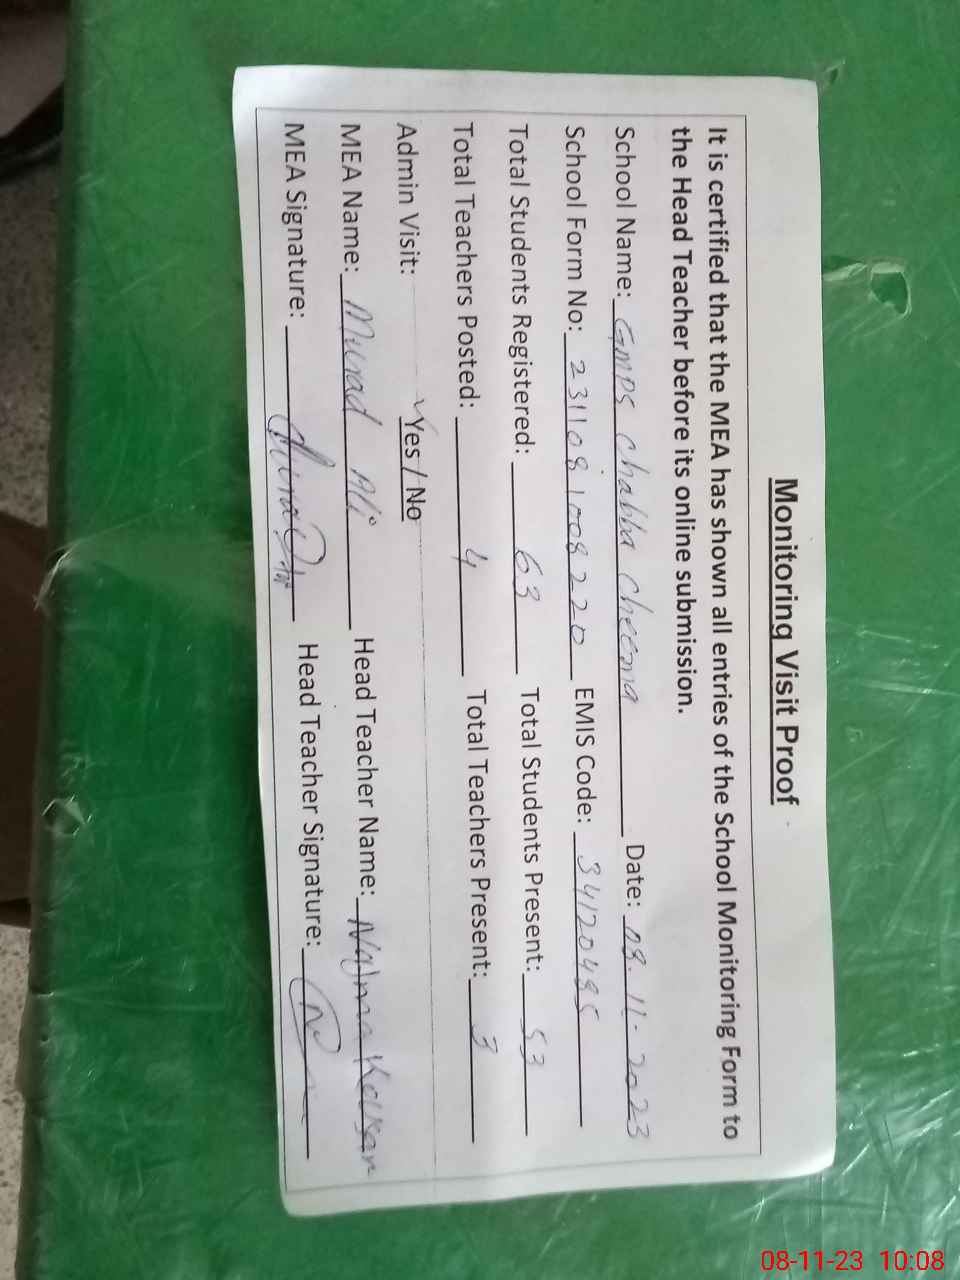 Monitoring Visit Proof
It is certified that the MEA has shown all entries of the School Monitoring Form to
the Head Teacher before its online submission.
School Name: GMPS Chabba Cheema Date: 08.11.2023
School Form No: 2311081008220 EMIS Code: 34120485
Total Students Registered: 63 Total Students Present: 53
Total Teachers Posted: 4 Total Teachers Present: 3
Admin Visit: Yes / No
MEA Name: Murad Ali Head Teacher Name: Najma Kousar
MEA Signature: Head Teacher Signature:
08-11-23 10:08